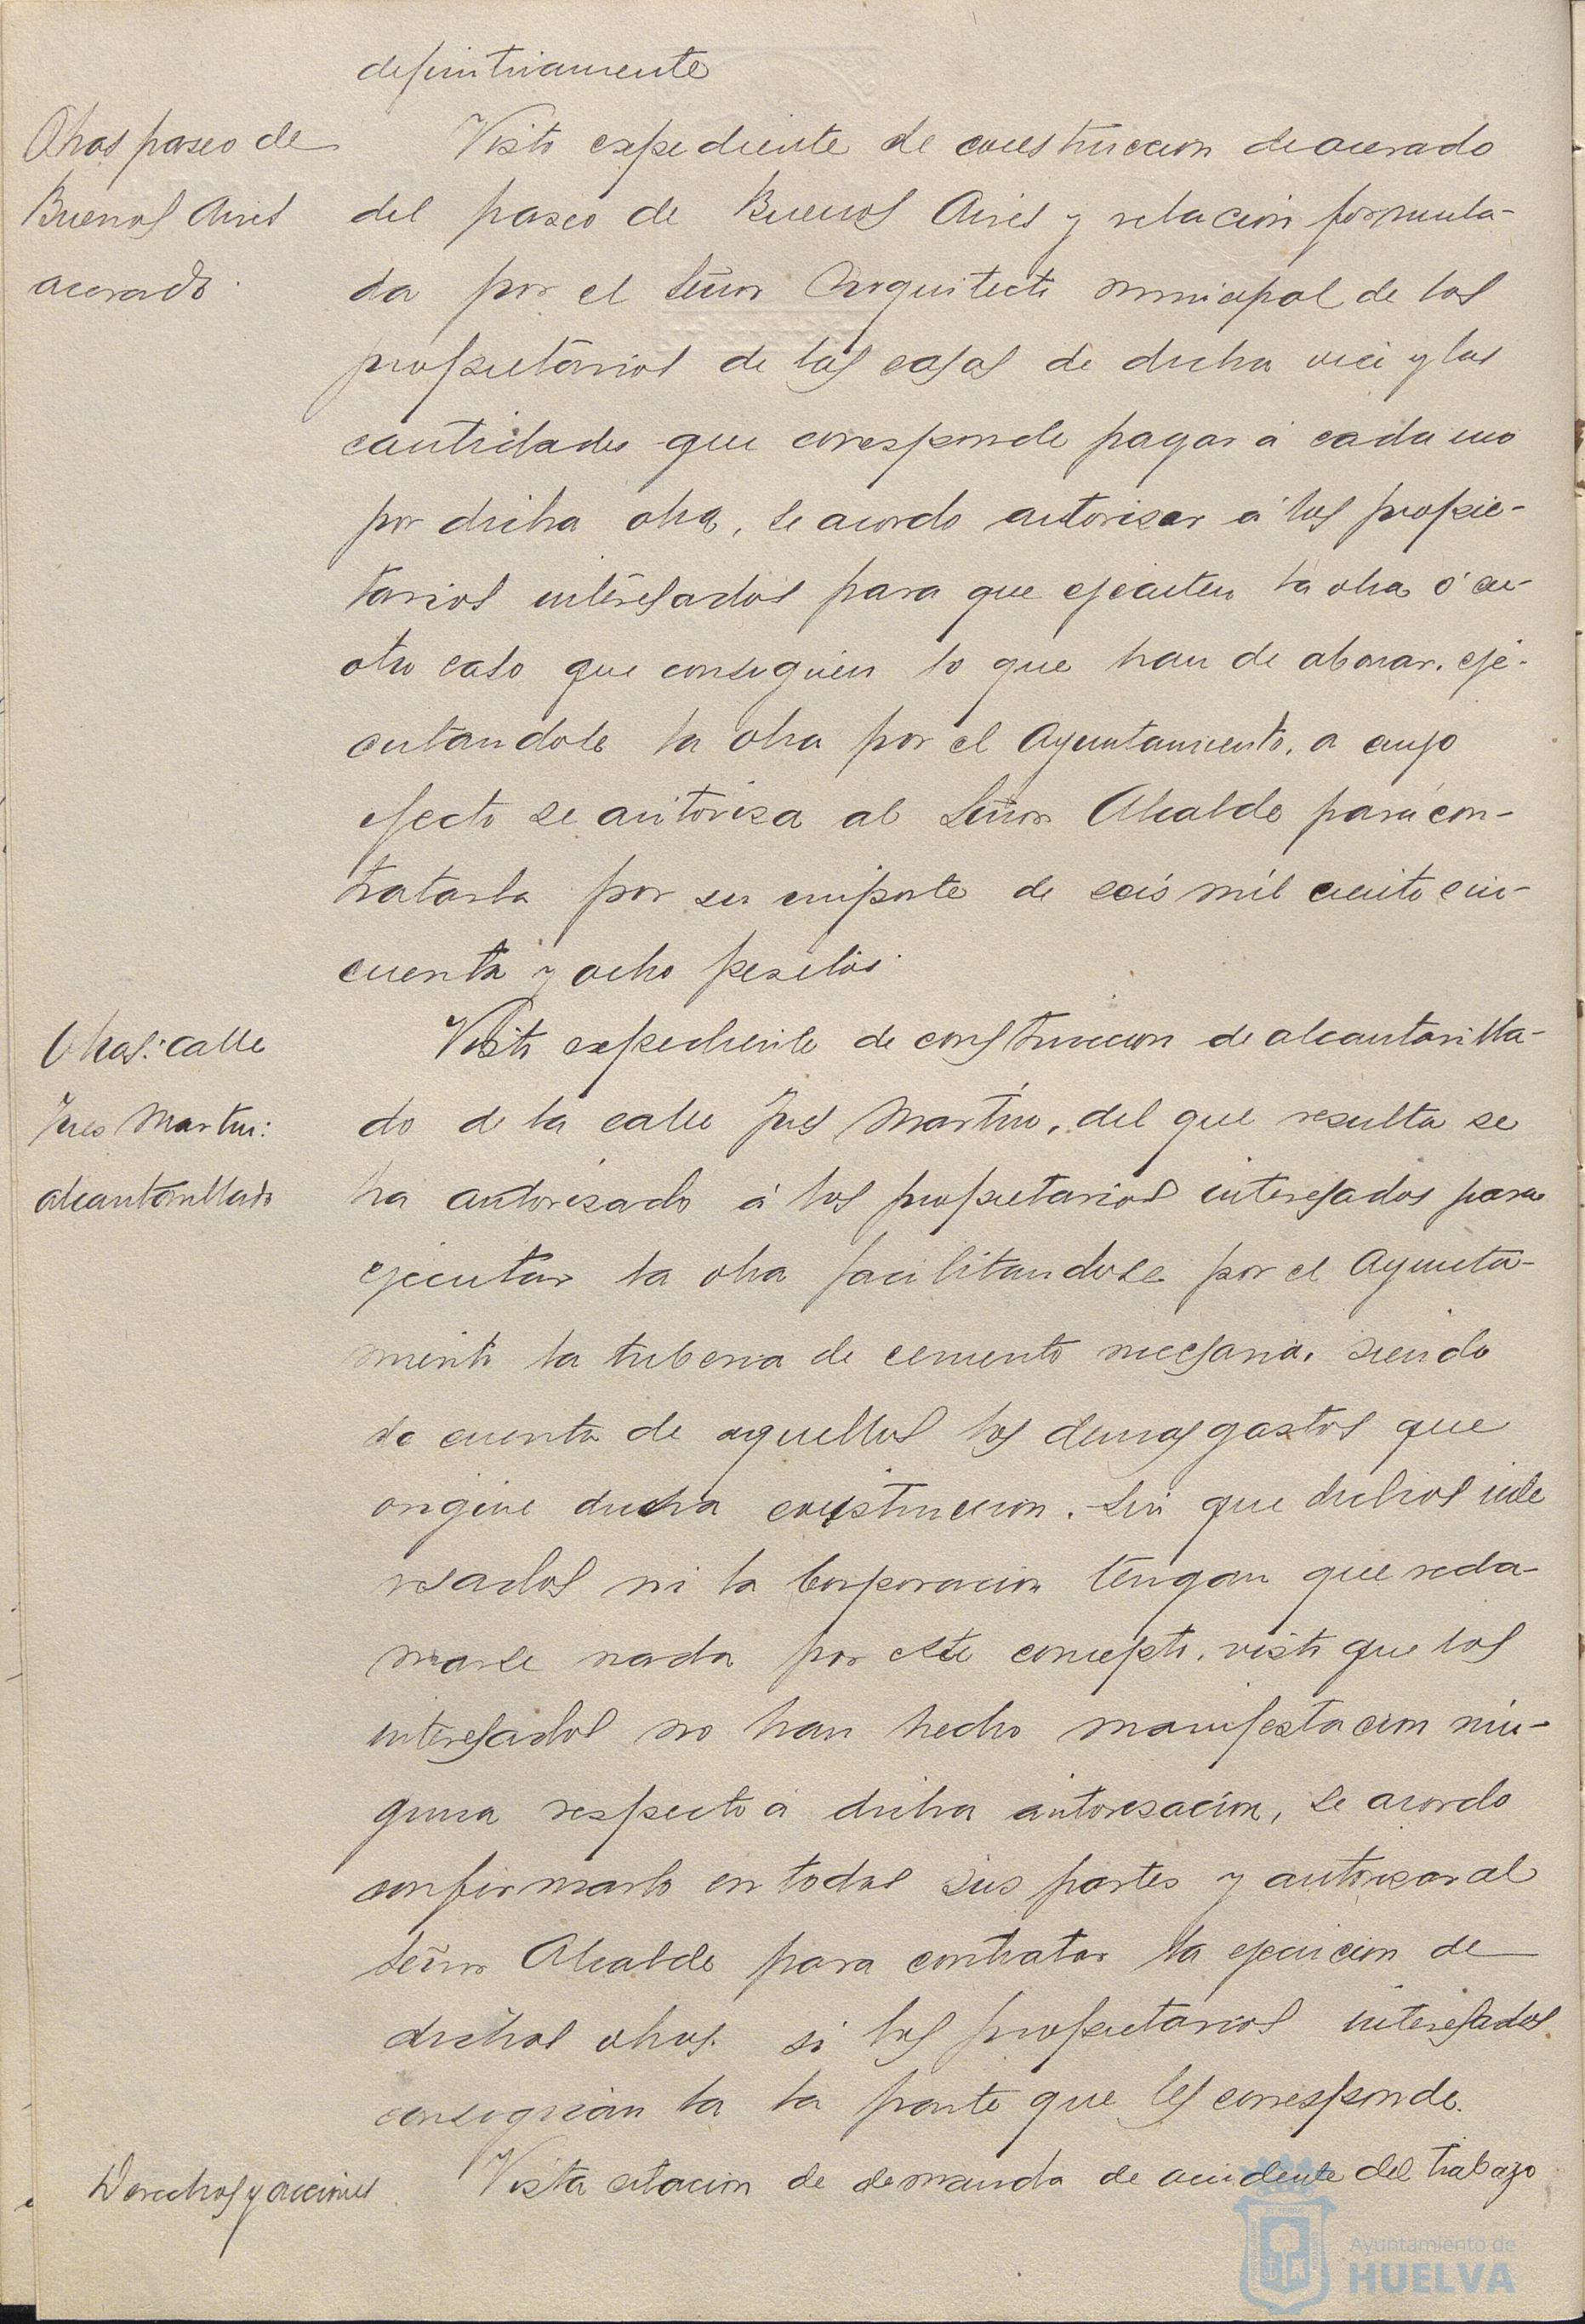 definitivamente
Obras paseo de
Buenos Aires
acerado.
Visto expediente de construccion de acerado
del paseo de Buenos Aires y relacion formula-
da por el Señor Arquitecto municipal de los
propietarios de las casas de dicha via y las
cantidades que corresponde pagar á cada uno
por dicha obra, se acordo autorizar á los propie-
tarios interesados para que ejecuten la obra ó en
otro caso que consignen lo que han de abonar, eje-
cutandose la obra por el Ayuntamiento, a cuyo
efecto se autoriza al Señor Alcalde para con-
tratarla por su importe de seis mil ciento cin-
cuenta y ocho pesetas.
Obras: calle
Ines Martin:
alcantarillado
Visto expediente de construccion de alcantarilla-
do de la calle Ines Martin, del que resulta se
ha autorizado á los propietarios interesados para
ejecutar la obra facilitandose por el Ayunta-
miento la tuberia de cemento necesaria, siendo
de cuenta de aquellos los demas gastos que
origine dicha construccion. Sin que dichos inte
resados ni la Corporacion tengan que recla-
marse nada por este concepto, visto que los
interesados no han hecho manifestacion nin-
guna respecto á dicha autorizacion, se acordo
confirmarlo en todas sus partes y autorizar al
Señor Alcalde para contratar la ejecucion de
dichas obras si los propietarios interesados
consignan la la parte que les corresponde.
Derechos y acciones
Vista citacion de demanda de accidente del trabajo
Ayuntamiento de
HUELVA